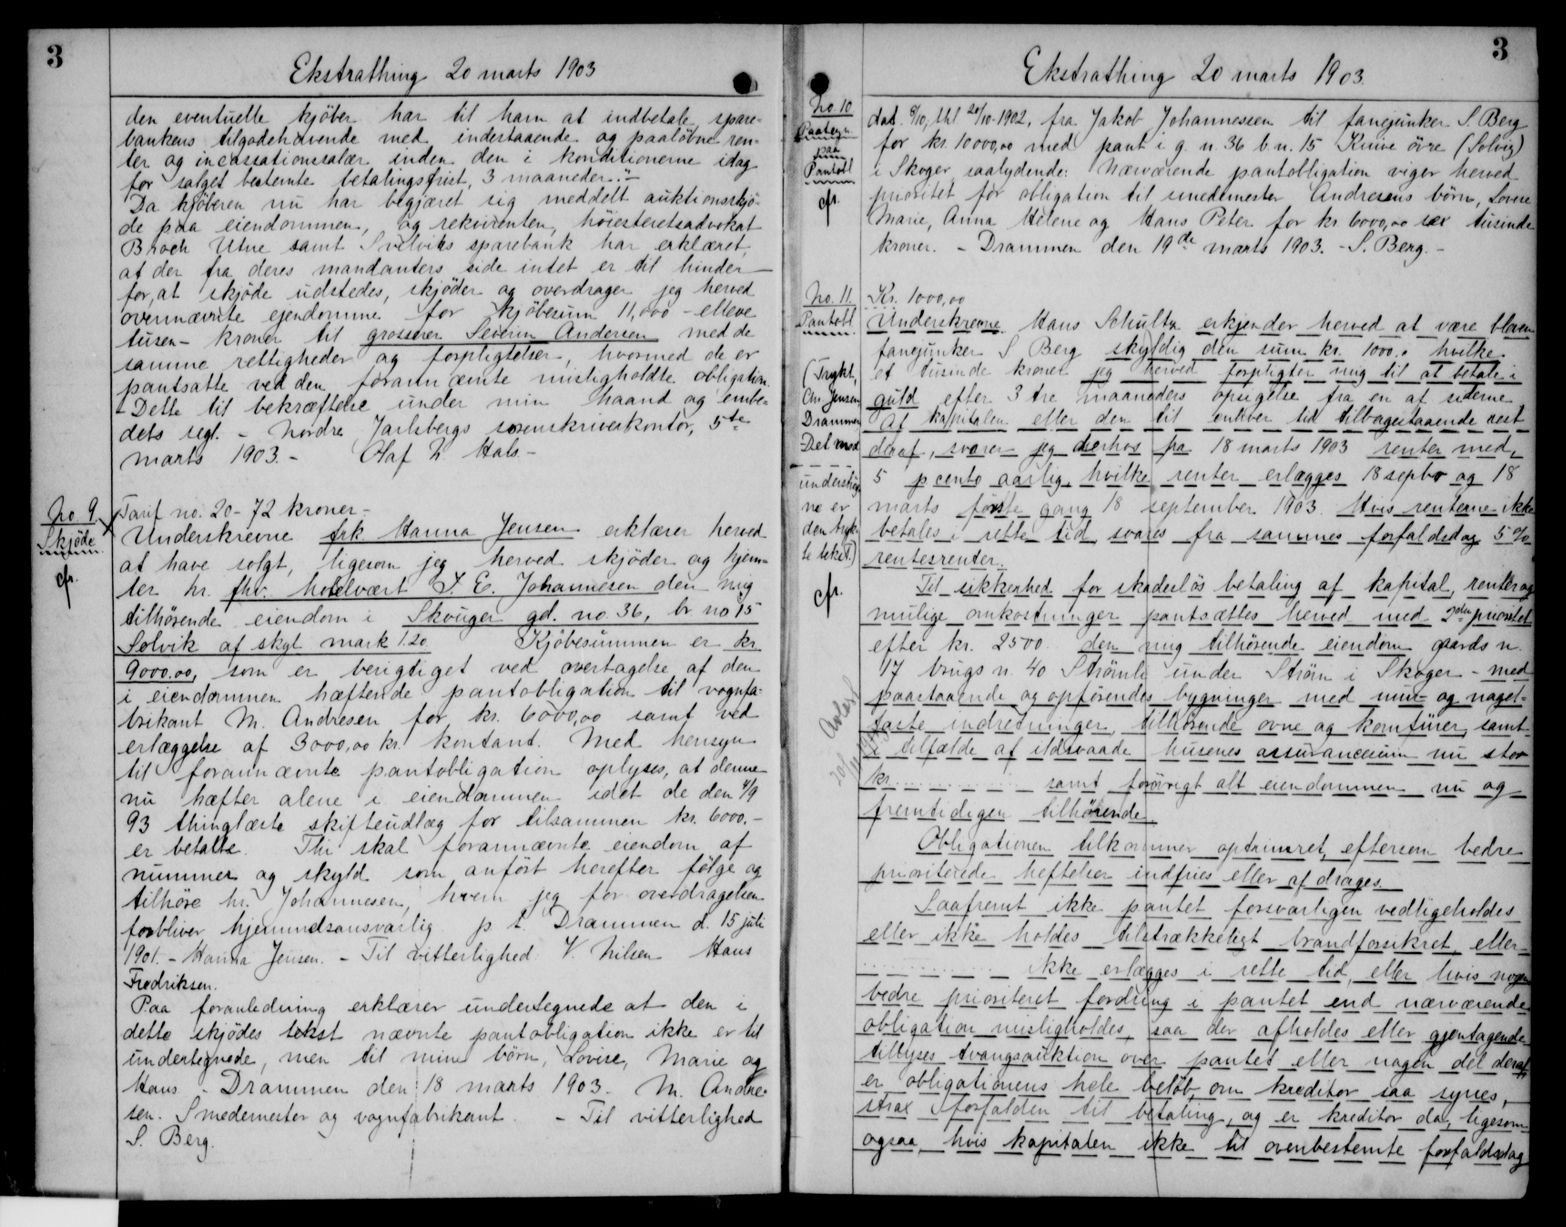 3
Ekstrathing 20 marts 1903
den eventuelle kjøber har til ham at indbetale spare-
bankens tilgodehavende med indestaaende og paaløbne ren-
ter og incassationssalær inden den i konditionerne idag
for salget bestemte betalingsfrist, 3 maaneder."
Da kjøberen nu har begjæret sig meddelt auktionsskjø-
de paa eiendommen, og rekvirenten, høiesteretsadvokat
Broch Utne samt Svelviks sparebank har erklæret,
at der fra deres mandanters side intet er til hinder
for, at skjøde udstedes, skjøder og overdrager jeg herved
ovennævnte ejendomme for kjøbesum 11,000 - elleve
tusen - kroner til grosserer Severin Andersen med de
samme rettigheder og forpligtelser, hvormed de er
pantsatte ved den forannævnte misligholdte obligation
- Dette til bekræftelse under min haand og embe-
dets segl. - Nordre Jarlsbergs sorenskriverkontor, 5te
marts 1903. - Olaf Hals -
No 9
Skjøde
cfr.
Tarif no. 20 - 72 kroner -
Underskrevne frk Hanna Jensen erklærer herved
at have solgt, ligesom jeg herved skjøder og hjem-
ler hr. fhv. hotelvært J. E. Johannesen den mig
tilhørende eiendom i Skouger gd. no. 36, br no 15
Solvik af skyl mark 1.20 Kjøbesummen er kr
9000.00, som er berigtiget ved overtagelse af den
i eiendommen hæftende pantobligation til vognfa-
brikant M. Andresen for kr. 6000,00 samt ved
erlæggelse af 3000,00 kr. kontant. Med hensyn
til forannævnte pantobligation oplyses, at denne
nu hæfter alene i eiendommen idet de den 4/9
93 thinglæste skifteudlæg for tilsammen kr. 6000.-
er betalte. Thi skal forannævnte eiendom af
nummer og skyld som anført herefter følge og
tilhøre hr. Johannesen, hvem jeg for overdragelsen
forbliver hjemmelsansvarlig. p t Drammen d. 15 juli
1901. - Hanna Jensen. - Til vitterlighed: V. Nilsen Hans
Fredriksen.
Paa foranledning erklærer undertegnede at den i
dette skjødes tekst nævnte pantobligation ikke er til
undertegnede, men til mine børn, Lovise, Marie og
Hans - Drammen den 18 marts 1903. M. Andre-
sen. Smedemester og vognfabrikant. - Til vitterlighed
S. Berg.
3
Ekstrathing 20 marts 1903
No. 10
Paategn
paa
Pantobl
cfr.
dat. 8/10, thl 20/10-1902, fra Jakob Johannessen til fanejunker S. Berg
for kr. 10000,00 med pant i g. n. 36 b. n. 15 Knive øvre (Solvig)
i Skoger saalydende: Nærværende pantobligation viger herved
prioritet for obligation til smedemester Andresens børn, Lovise
Marie, Anna Helene og Hans Peter for kr. 6000,00 sex tusinde
kroner. - Drammen den 19de marts 1903. - S. Berg. -
No. 11.
Pantobl
(Trykt,
Chr. Jensen
Drammen
Det med
understreg-
ne er
den tryk-
te tekst.)
cfr.
Kr. 1000,00
Underskrevne Hans Schultz erkjender herved at være bleven
fanejunker S Berg skyldig den sum kr. 1000.. hvilke
et tusinde kroner jeg herved forpligter mig til at betale i
guld efter 3 tre maaneders opsigelse fra en af siderne
Af kapitalen eller den til enhver tid tilbagestaaende rest
deraf, svarer jeg derhos fra 18 marts 1903 renter med,
5 pcento aarlig, hvilke renter erlægges 18 septbr og 18
marts første gang 18 september 1903. Hvis renterne ikke
betales i rette tid, svares fra sammes forfaldsdag 5 %
rentesrenter.
Til sikkerhed for skadesløs betaling af kapital, renter og
mulige omkostninger pantsættes herved med 2den prioritet
efter kr. 2500 den mig tilhørende eiendom gaards n.
17 brugs n. 40 Strømli under Strøm i Skoger - med
paastaaende og opførendes bygninger med mur- og nagel-
faste indretninger, tilhørende ovne og komfurer, samt
i tilfælde af ildsvaade husenes assurancesum nu stor
kr. samt forøvrigt alt eiendommen nu og
fremtidigen tilhørende
Obligationen tilkommer optrinsret, eftersom bedre
prioriterede heftelser indfries eller afdrages.
Saafremt ikke pantet forsvarligen vedligeholdes
eller ikke holdes tilstrækkeligt brandforsikret, eller
ikke erlægges i rette tid, eller hvis nogen
bedre prioriteret fordring i pantet end nærværende
obligation misligholdes, saa der afholdes eller gjentagende
tillyses tvangsauktion over pantet eller nogen del deraf,
er obligationens hele beløb, om kreditor saa synes,
strax forfalden til betaling, og er kreditor da, ligesom
ogsaa, hvis kapitalen ikke til ovenbestemte forfaldsdag